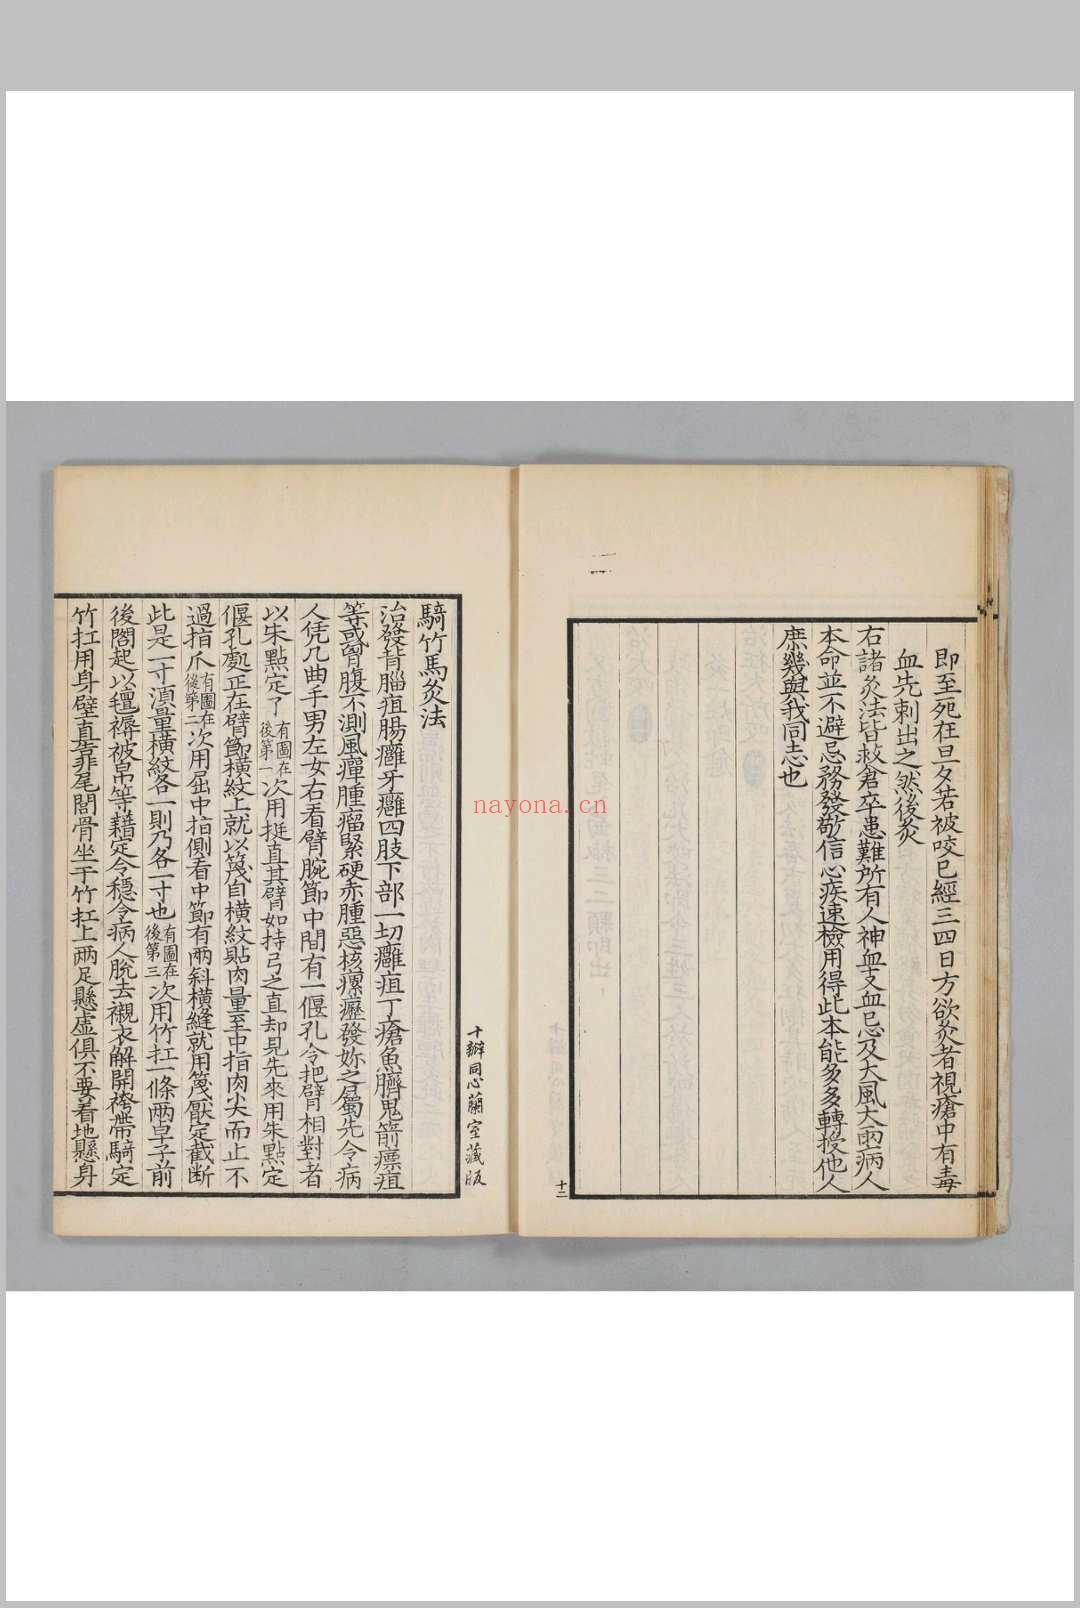 即至死在旦夕若被咬已經三四日方欲灸者視瘡中有毒
血先刺出之然後灸
右諸灸法皆救倉卒患難所有人神血支血忌及大風大雨病人
本命並不避忌務發敬信心疾速檢用得此本能多多轉授他人
庶幾與我同志也
十二
騎竹馬灸法
治發背腦疽腸癰牙癰四肢下部一切癰疽丁瘡魚臍鬼箭瘭疽
等或胷腹不測風癉腫瘤緊硬赤腫惡核瘰癧發妳之屬先令病
人凭几曲手男左女右看臂腕節中間有一偃孔令把臂相對者
以朱點定了有圖在後第一次用挺直其臂如持弓之直却見先來用朱點定
偃孔處正在臂節橫紋上就以篾自橫紋貼肉量至中指肉尖而止不
過指爪有圖在後第二次用屈中指側看中節有兩斜橫縫就用篾壓定截斷
此是一寸須量橫紋各一則乃各一寸也有圖在後第三次用竹扛一條兩卓子前
後閣起以氊褥被帛等藉定令穩令病人脫去襯衣解開袴帶騎定
竹扛用身壁直靠尾閭骨坐于竹扛上兩足懸虛俱不要着地懸身
十瓣同心蘭室藏版
nayona.cn